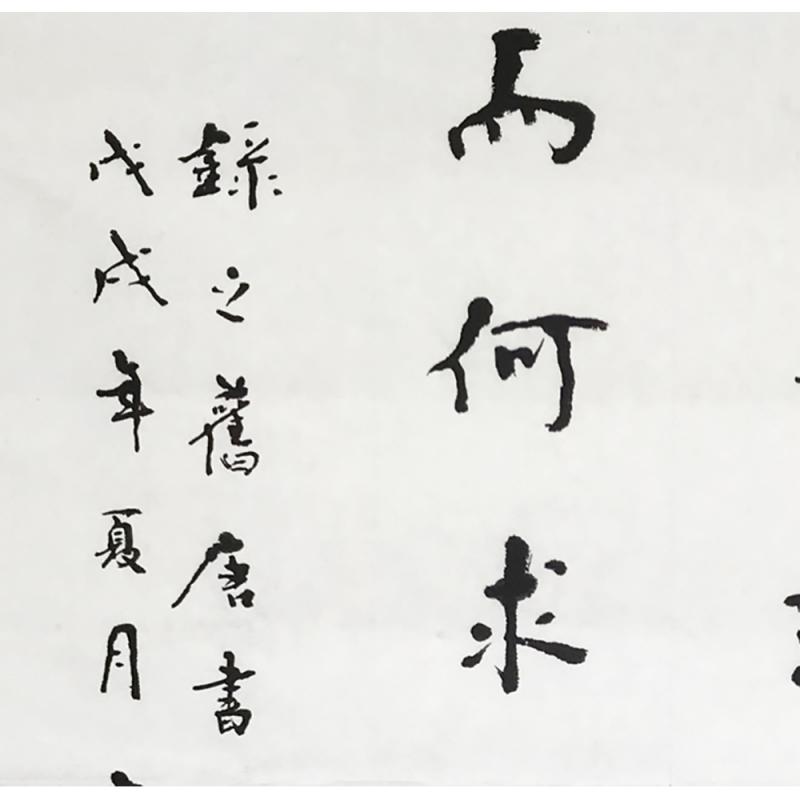 而何求
錄之舊唐書
戊戌年夏月